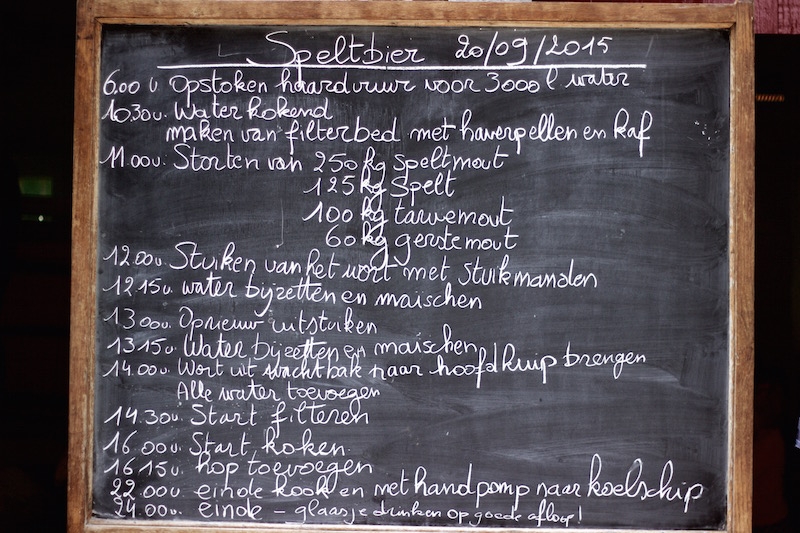 Speltbier 20/09/2015
6.00 u opstoken haardvuur voor 3000 l water
10.30u. Water kokend
maken van filterbed met haverpellen en kaf
11.00u. Storten van 250 kg speltmout
125 kg Spelt
100 kg tarwemout
60 kg gerstemout
12.00u. Stuiken van het wort met stuikmanden
12.15u. water bijzetten en maischen
13.00u. Opnieuw uitstuiken
13.15u. Water bijzetten en maischen
14.00u. Wort uit wachtbak naar hoofdkuip brengen
Alle water toevoegen
14.30u. Start filteren
16.00u. Start koken
16.15u. hop toevoegen
22.00u. einde kook en met handpomp naar koelschip
24.00u. einde – glaasje drinken op goede afloop!